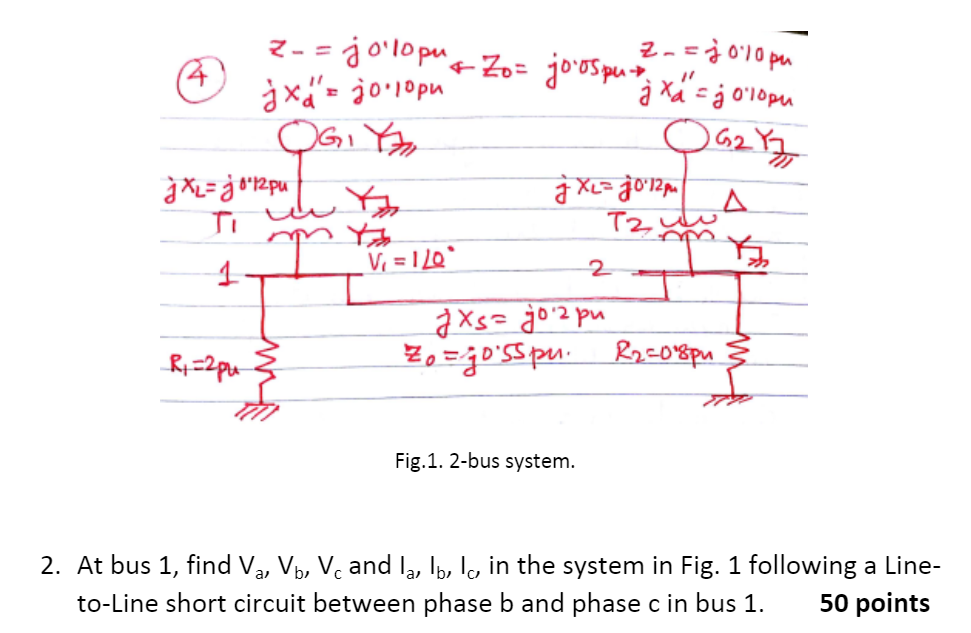 ④
Z- = j0.10pu ← Z₀ = j0.05pu → Z- = j0.10pu
jXd" = j0.10pu jXd" = j0.10pu
G1 G2
jXL = j0.12pu jXL = j0.12pu
T1 T2 Δ
V₁ = 1∠0°
1 2
jXs = j0.2pu
Z₀ = j0.55pu. R₂=0.8pu
R₁=2pu
Fig.1. 2-bus system.
2. At bus 1, find Va, Vb, Vc and Ia, Ib, Ic, in the system in Fig. 1 following a Line-
to-Line short circuit between phase b and phase c in bus 1. 50 points